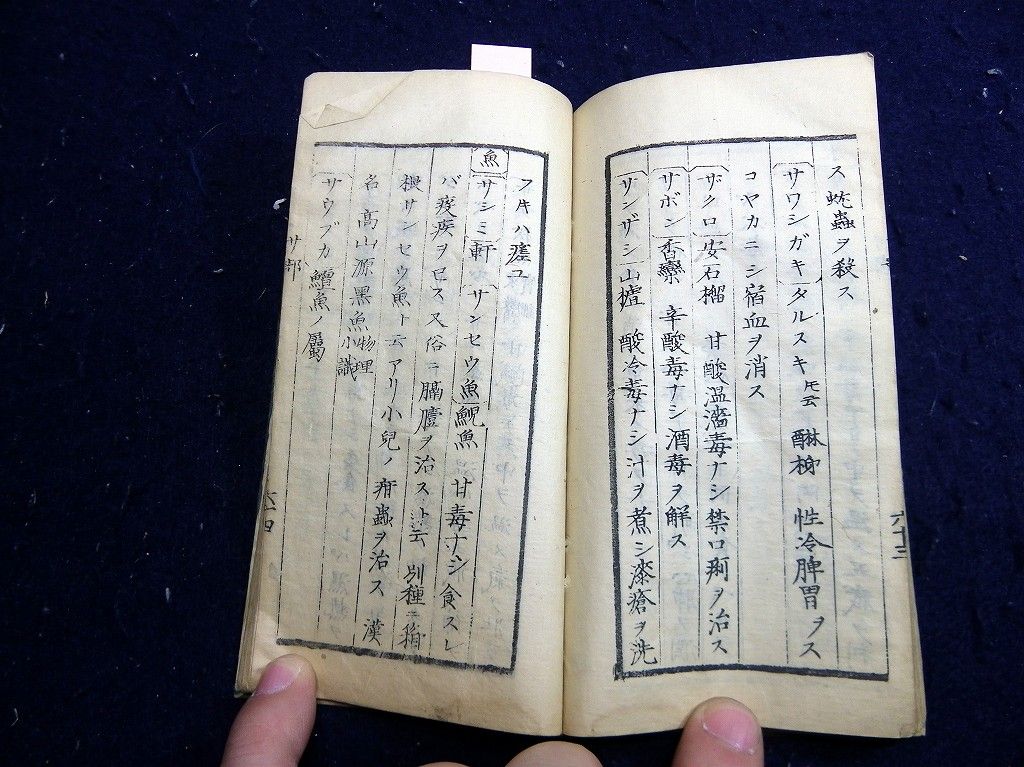 ス蚘蟲ヲ殺ス
サワシガキ タルスキ 醂柹 性冷脾胃ヲス
コヤカニシ宿血ヲ消ス
ザクロ 安石榴 甘酸温濇毒ナシ禁口痢ヲ治ス
サボン 香欒 辛酸毒ナシ酒毒ヲ解ス
サンザシ 山樝 酸冷毒ナシ汁ヲ煮シ漆瘡ヲ洗
六十三
フ片ハ瘥ユ
魚 サシミ 軒 サンセウ魚 鯢魚 甘毒ナシ食スレ
バ疫疾ヲ 又俗ニ膈噎ヲ治スト云 別種ニ箱
根サンセウ魚ト云アリ小兒ノ疳蟲ヲ治ス 漢
名 高山源黑魚 物理小識
サウブカ 鱷魚ノ屬
サ部
六十四